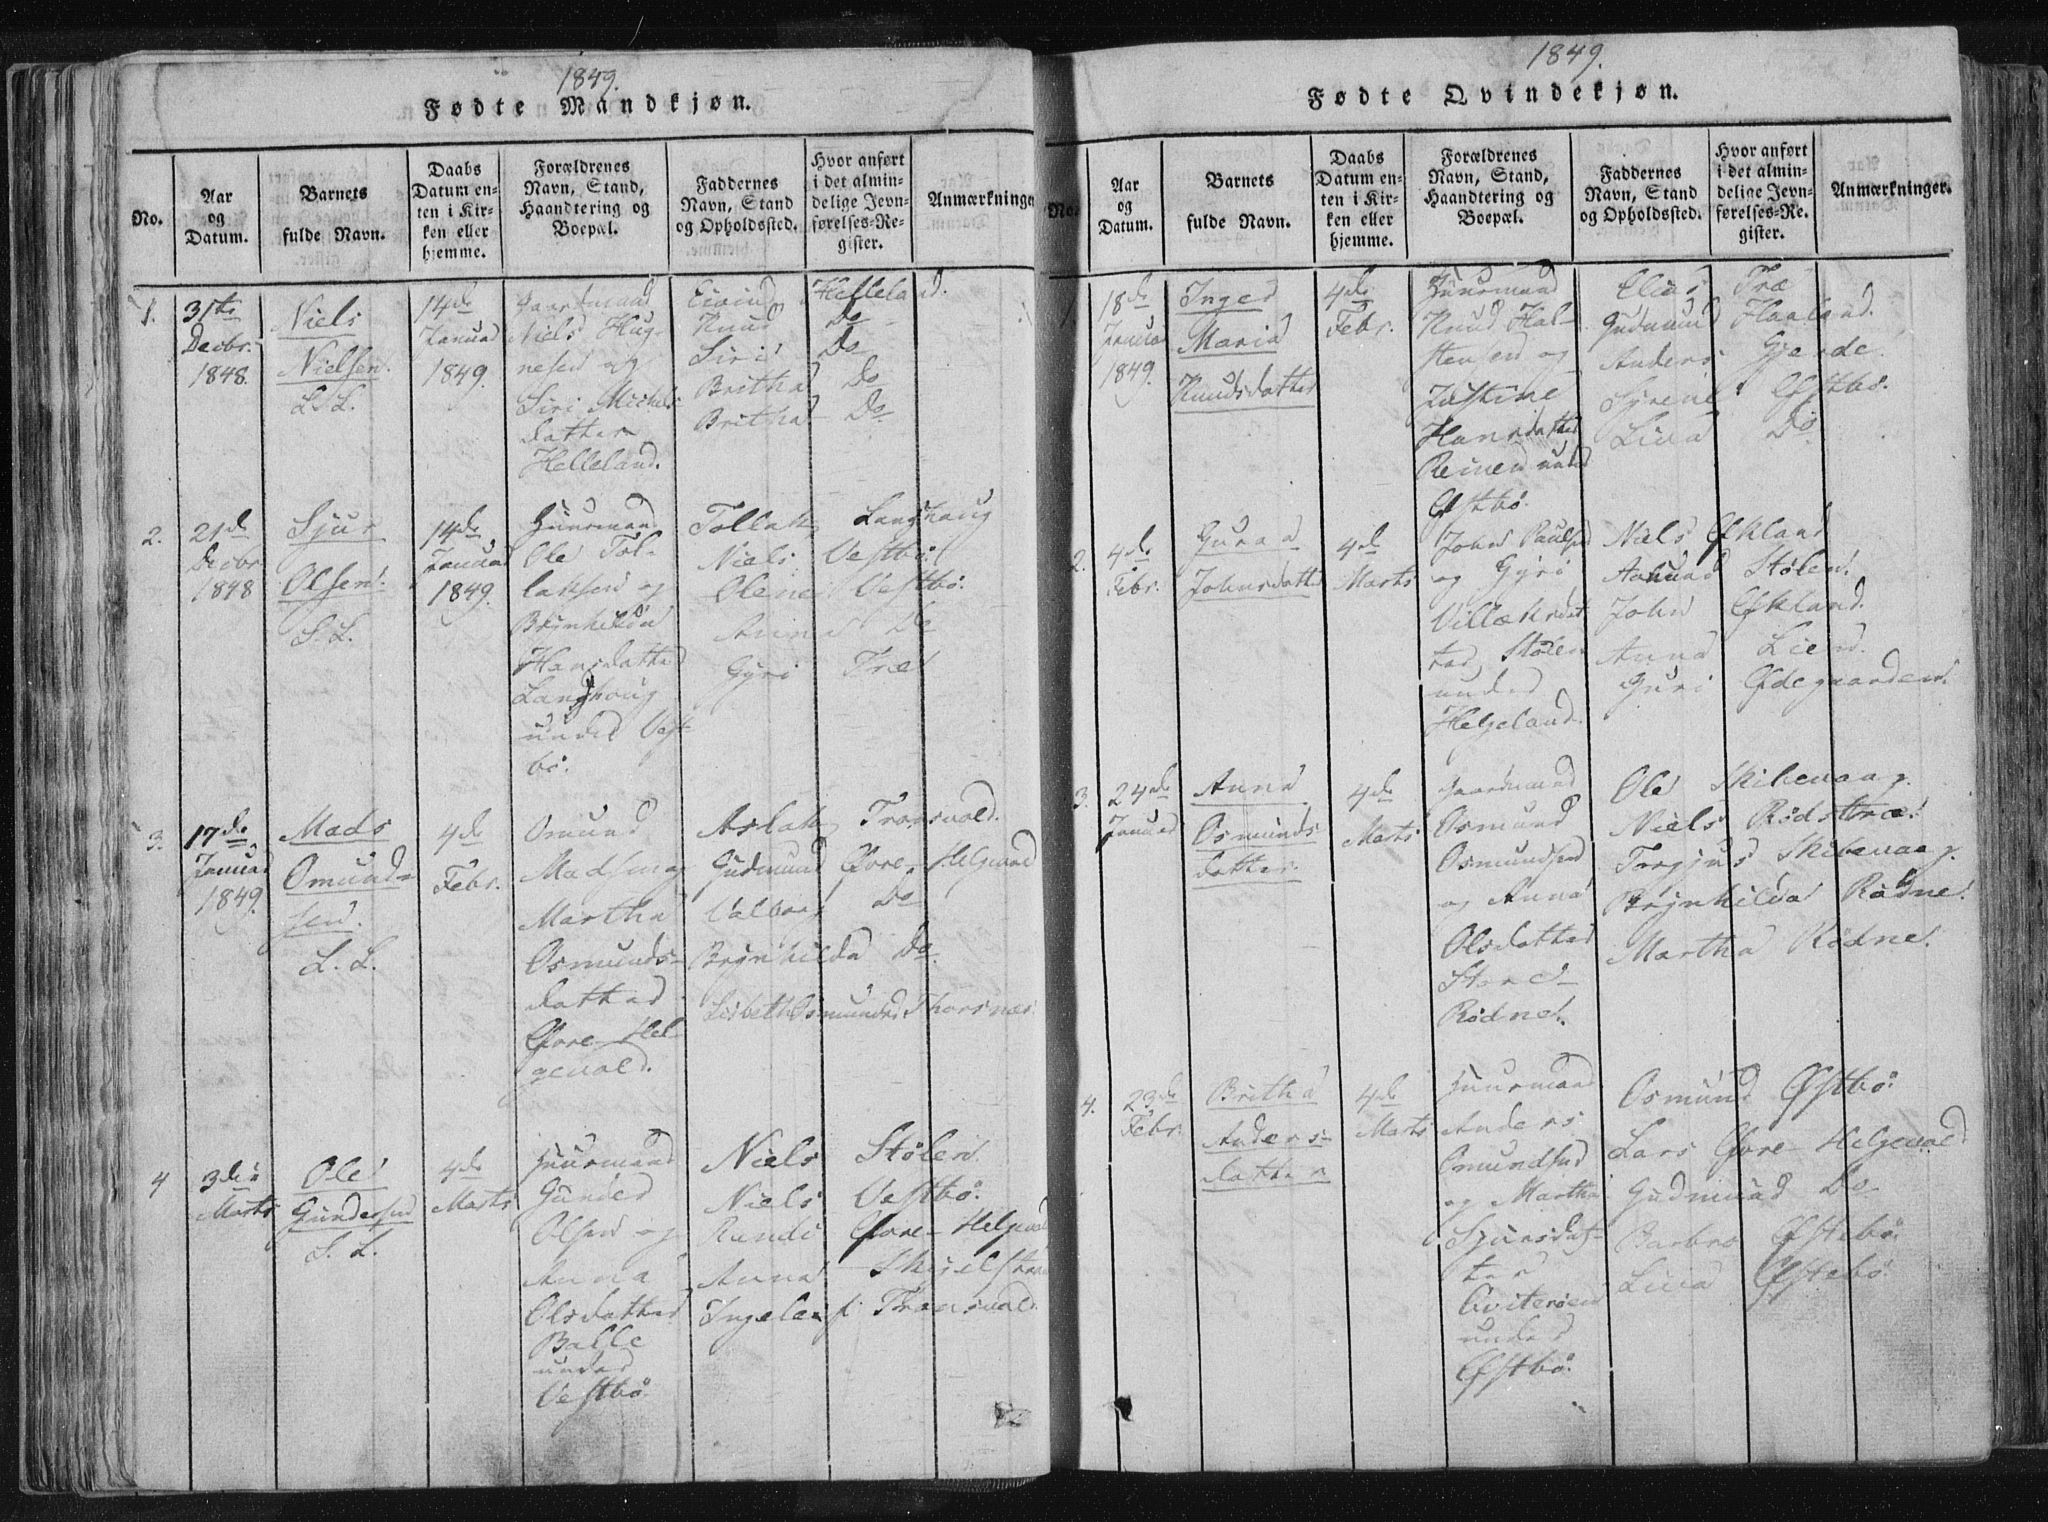 1849.
Fødte Mandkjøn.
No.
Aar
og
Datum.
Barnets
fulde Navn.
Daabs
Datum en-
ten i Kir-
ken eller
hjemme.
Forældrenes
Navn, Stand,
Haandtering og
Boepæl.
Faddernes
Navn, Stand
og Opholdssted.
Hvor anført
i det almin-
delige Jevn-
førelses-Re-
gister.
Anmærkninger
1.
31te
Decbr.
1848.
Niels
Nielsen.
L. L.
14de
Januar
1849.
Gaardmand
Niels Hug-
nesen og
Siri Michels
datter
Helleland.
Eivind Helleland.
Knud Do
Siri Do
Britha Do
Britha Do
2.
21de
Decbr
1848
Sjur
Olsen.
S. L.
14de
Januar
1849.
Huusmand
Ole Tol-
laksen og
Brynhilda
Hansdatter
Langhoug
under Vest-
bø.
Tollak Langhaug
Niels Vestbø
Olene Vestbø.
Anna Do
Gyri Træ
3.
17de
Januar
1849.
Mads
Omund-
sen.
L. L.
4de
Febr.
Omund
Madsen og
Martha
Osmunds-
datter
Øvre Hel-
gevold.
Aslak Tronsvold.
Gudmund Øvre-Helgevold
Valborg Do
Brynhilda Do.
Lisbeth Osmundsd Thorsnæs
4
3die
Marts
Ole
Gundersen
S. L.
4de
Marts
Huusmand
Gunder
Olsen og
Anna
Olsdatter
Balle
under
Vestbø.
Niels Stølen.
Niels Vestbø.
Randi Øvre-Helgevol
Anna
Ingeleif Tronsvold.
1849.
Fødte Qvindekjøn.
No.
Aar
og
Datum.
Barnets
fulde Navn.
Daabs
Datum en-
ten i Kir-
ken eller
hjemme.
Forældrenes
Navn, Stand,
Haandtering og
Boepæl.
Faddernes
Navn, Stand
og Opholdssted.
Hvor anført
i det almin-
delige Jevn-
førelses-Re-
gister.
Anmærkninger.
1.
18de
Januar
1849.
Inger
Maria
Knudsdatter
4de
Febr.
Huusmand
Knud Hal-
stensen og
Justine
Hansdatter
Reinen under
Østbø.
Elias Træ
Gudmund Haaland.
Anders Gjerde.
Syrene Østbø.
Liva Do
2.
4de
Febr.
Guraa
Johnsdatter
4de
Marts
John Paulsen
og Gyri
Villaksdat
ter, Stølen
under
Helgeland.
Niels Eskland
Aamund Stølen.
John Eskland.
Anna Lien.
Guri Ødegaarden.
3.
24de
Januar
Anna
Osmunds
datter.
4de
Marts
Gaardmand
Osmund
Osmundsen
og Anna
Olsdatter
Store-
Rødne.
Ole Skibevaag.
Niels Rødstræ.
Torgjus Skibevaag.
Brynhilda Rødne.
Martha Rødne.
4.
23de
Febr.
Britha
Anders-
datter
4de
Marts
Huusmand
Anders
Omundsen
og Martha
Sjursdat-
ter
Qviterøen
under
Østbø.
Osmund Østbø
Lars Øvre-Helgevold
Gudmund Do
Barbro Østebø.
Liva Østebø.